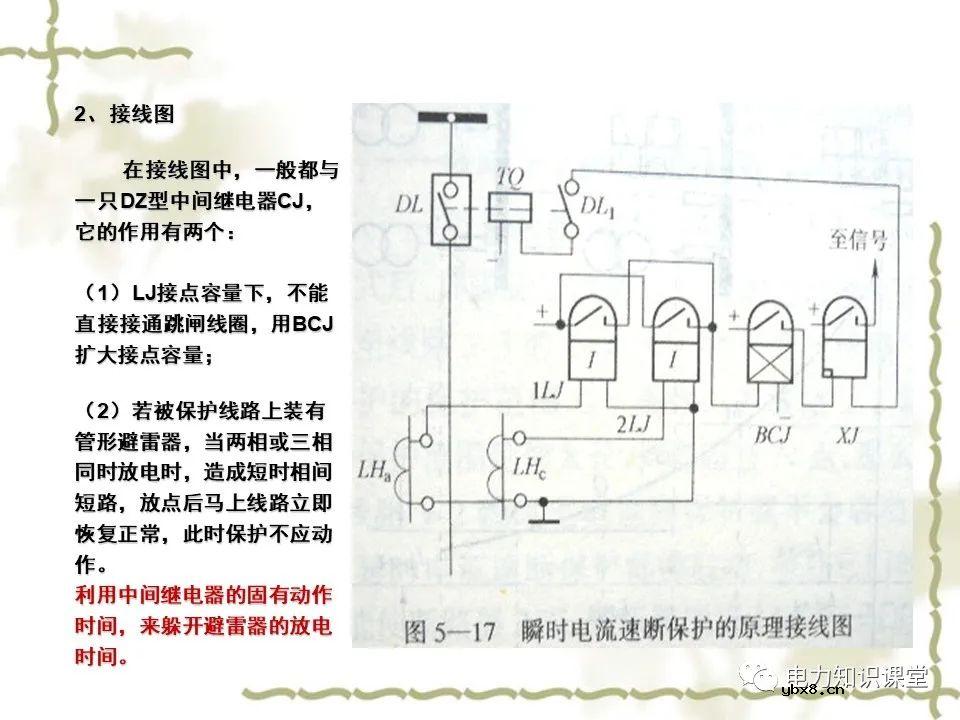 2、接线图
在接线图中，一般都与
一只DZ型中间继电器CJ，
它的作用有两个：
（1）LJ接点容量下，不能
直接接通跳闸线圈，用BCJ
扩大接点容量；
（2）若被保护线路上装有
管形避雷器，当两相或三相
同时放电时，造成短时相间
短路，放点后马上线路立即
恢复正常，此时保护不应动
作。
利用中间继电器的固有动作
时间，来躲开避雷器的放电
时间。
DL
TQ
DL₁
至信号
+
I
I
+
+
1LJ
2LJ
−
BCJ
XJ
LHₐ
LHc
图 5—17 瞬时电流速断保护的原理接线图
电力知识课堂
ybx8.cn